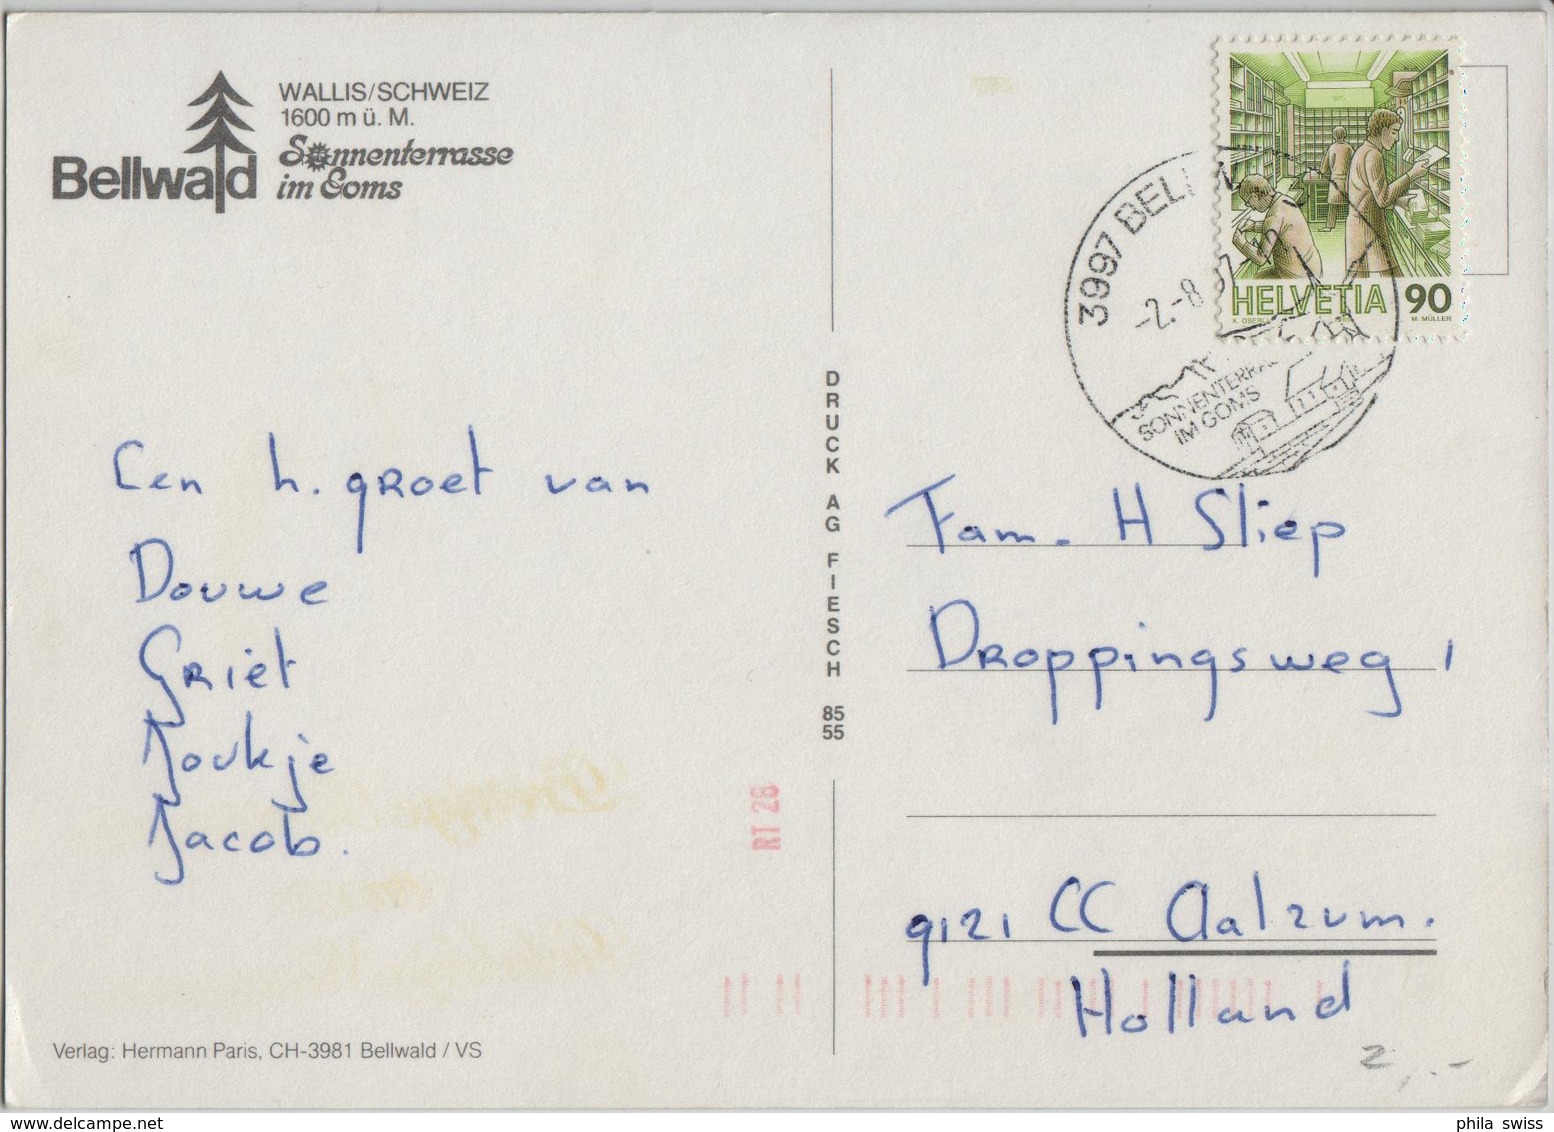 WALLIS/SCHWEIZ
1600 m ü. M.
Sonnenterrasse
im Goms
Bellwald
Een h. groet van
Douwe
Griet
Joukje
Jacob.
Verlag: Hermann Paris, CH-3981 Bellwald / VS
DRUCK AG FIESCH 85 55
RT 28
HELVETIA 90
M. MÜLLER
3997
-2.-8
SONNENTERRA
IM GOMS
Fam. H Sliep
Droppingsweg 1
9121 CC Aalzum.
Holland
2,.-
phila swiss